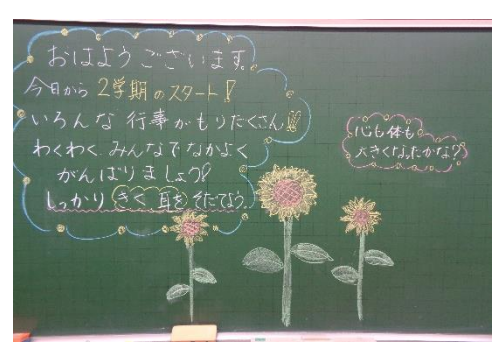 おはようございます。
今日から 2学期のスタート!
いろんな 行事がもりだくさん!!
わくわく みんなでなかよく
がんばりましょう!
しっかり きく 耳を そだてよう
心も体も
大きくなったかな?